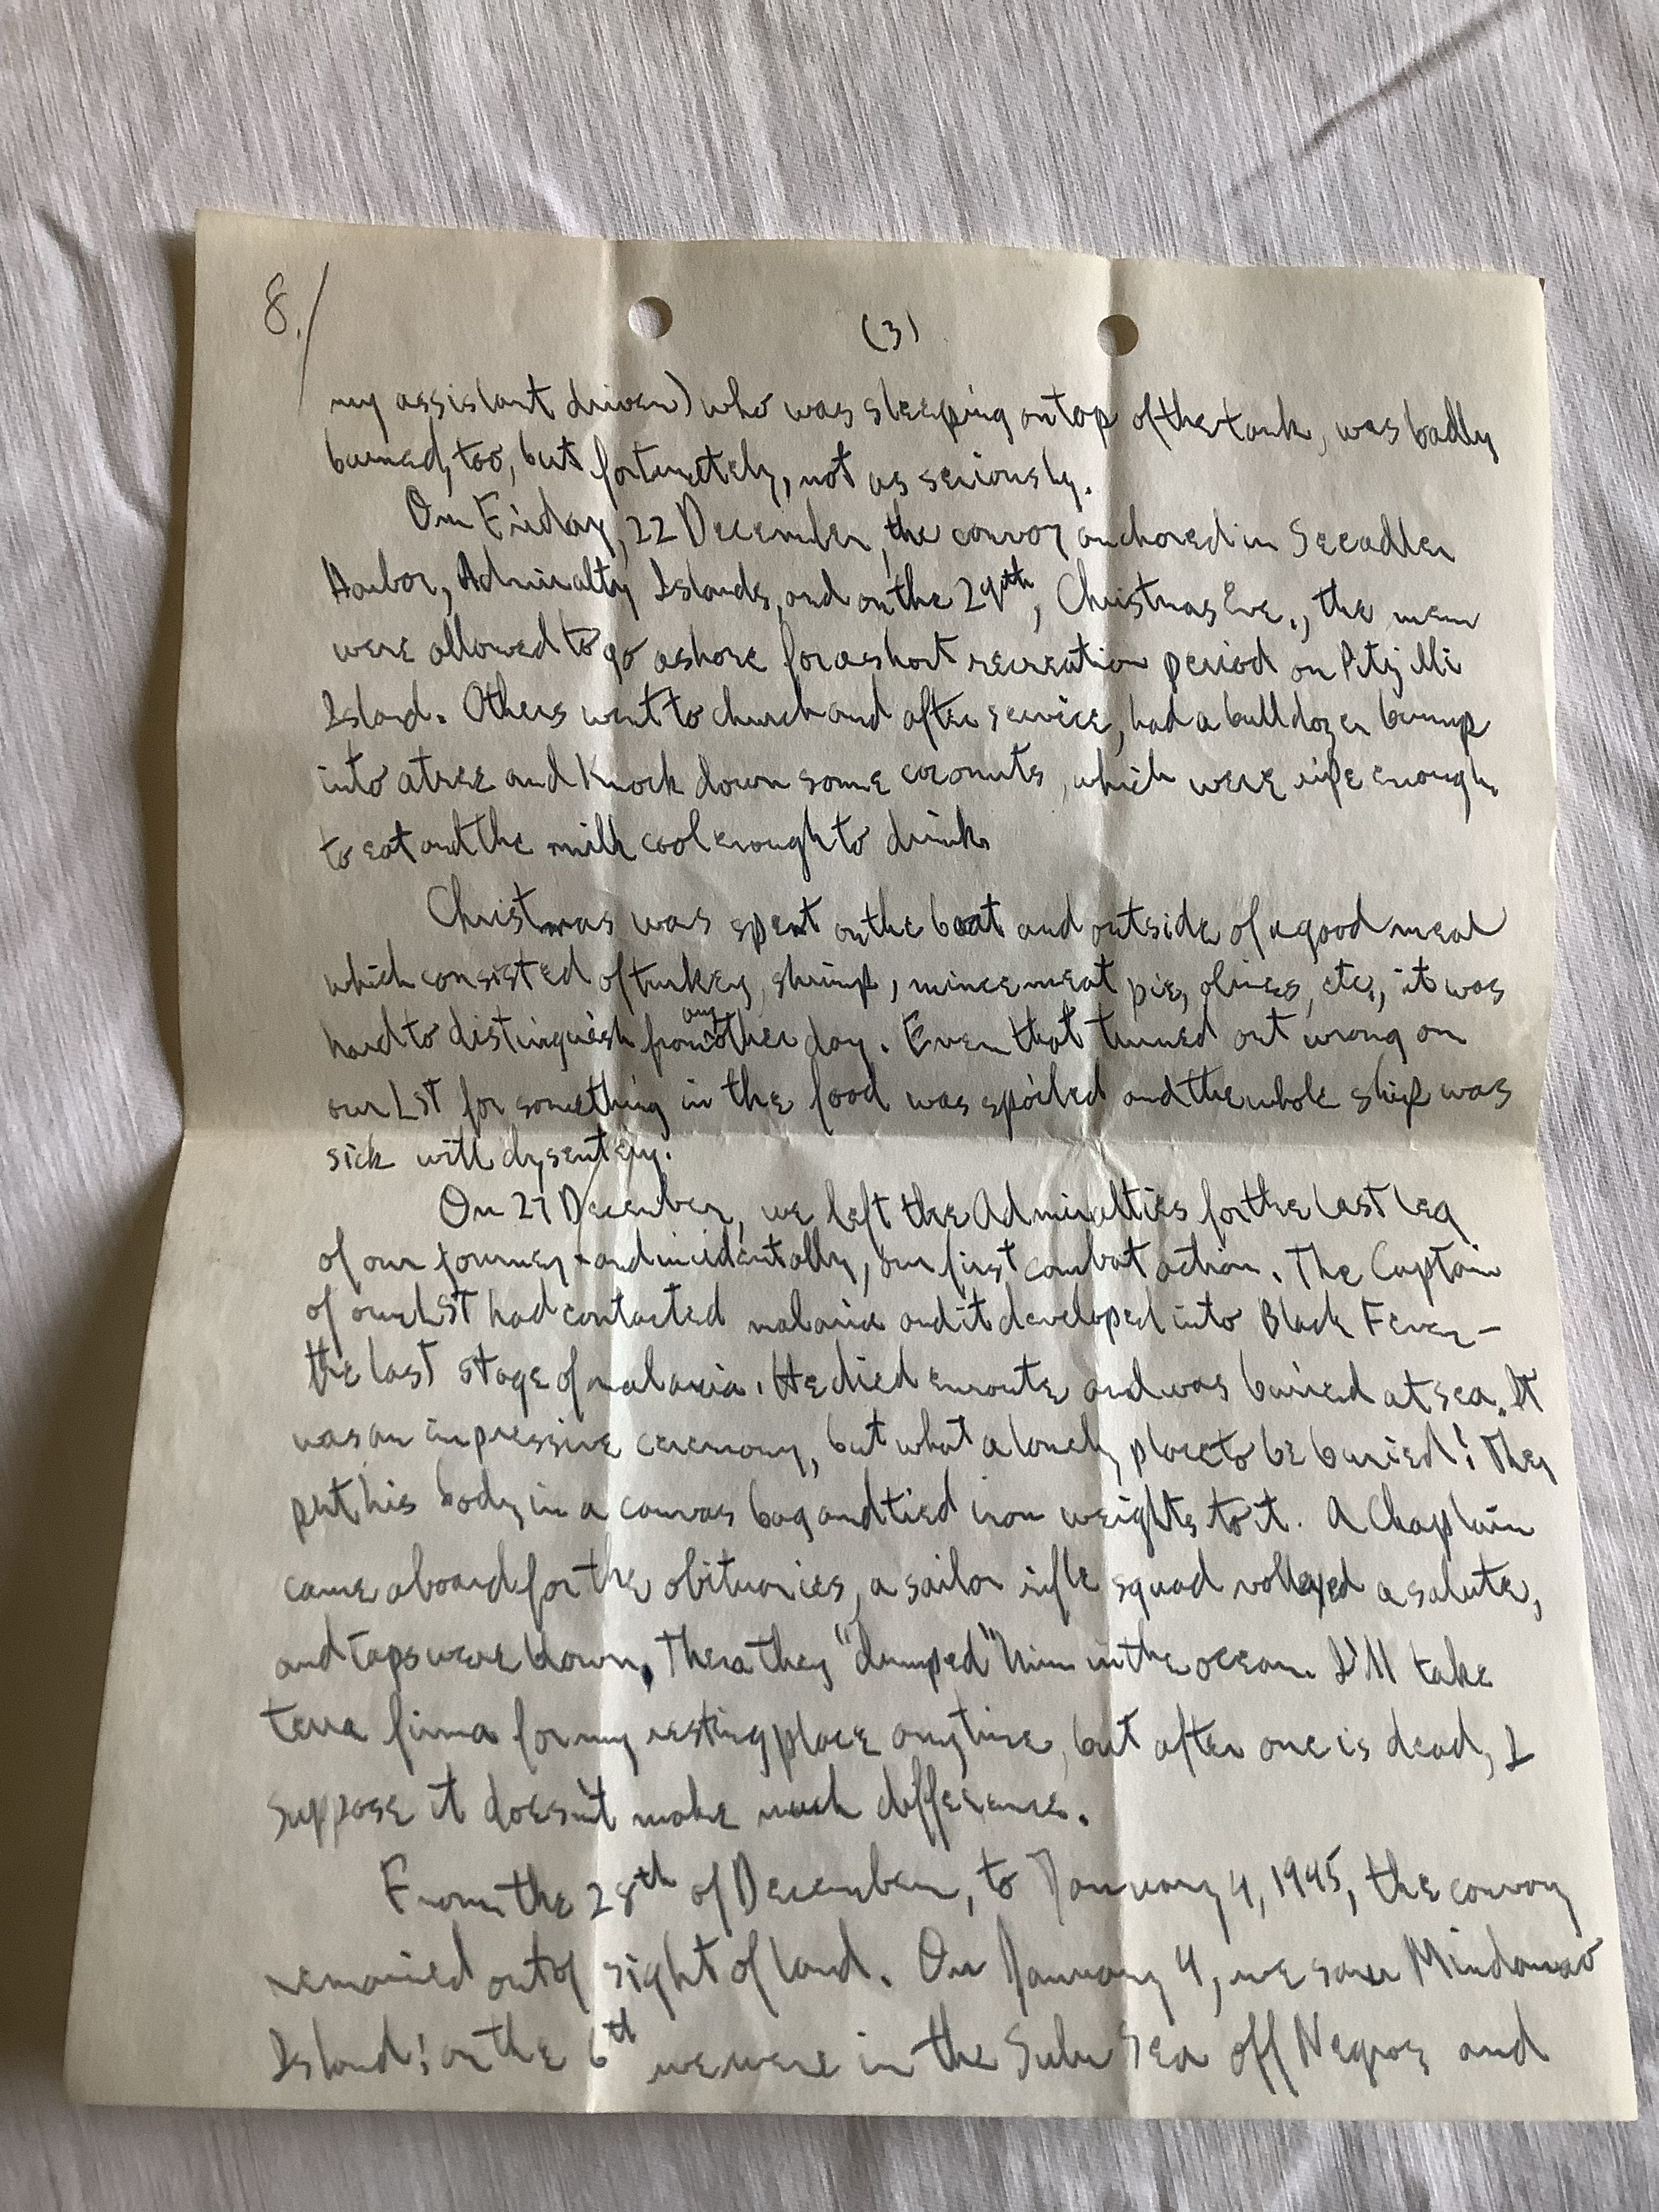 8./
(3)
my assistant driver) who was sleeping on top of the tank, was badly
burned, too, but fortunately, not as seriously.
On Friday, 22 December, the convoy anchored in Seeadler
Harbor, Admiralty Islands, and on the 24th, Christmas Eve., the men
were allowed to go ashore for a short recreation period on Pityilli
Island. Others went to church and after service, had a bulldozer bump
into a tree and knock down some coconuts, which were ripe enough
to eat and the milk cool enough to drink.
Christmas was spent on the boat and outside of a good meal
which consisted of turkey, shrimp, mince meat pie, olives, etc., it was
hard to distinguish from any other day. Even that turned out wrong on
our LST for something in the food was spoiled and the whole ship was
sick with dysentery.
On 27 December, we left the Admiralties for the last leg
of our journey - and incidentally, our first combat action. The Captain
of our LST had contacted malaria and it developed into Black Fever -
the last stage of malaria. He died enroute and was buried at sea. It
was an impressive ceremony, but what a lonely place to be buried! They
put his body in a canvas bag and tied iron weights to it. A Chaplain
came aboard for the obituaries, a sailor rifle squad volleyed a salute,
and taps were blown. Then they "dumped" him in the ocean. I'll take
terra firma for my resting place anytime, but after one is dead, I
suppose it doesn't make much difference.
From the 28th of December, to January 4, 1945, the convoy
remained out of sight of land. On January 4, we saw Mindanao
Island; on the 6th we were in the Sulu Sea off Negros and